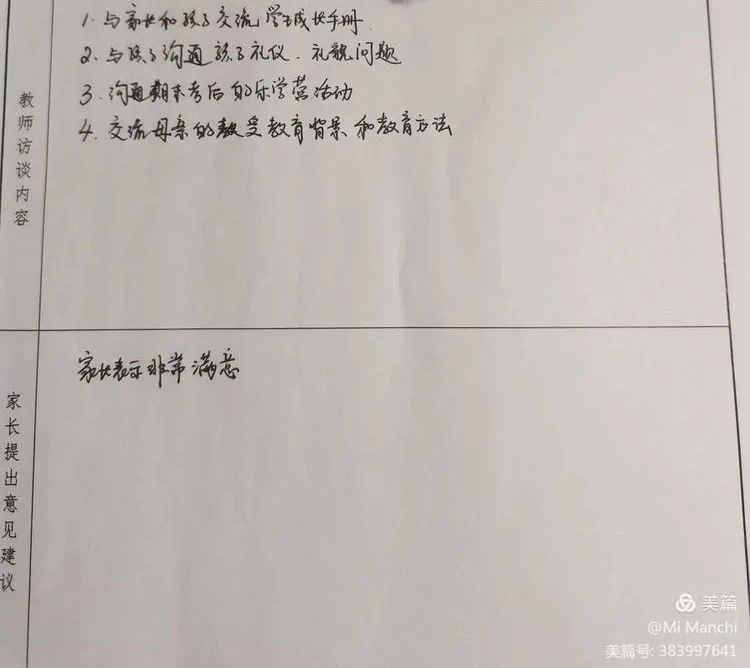 教师访谈内容
1. 与家长和孩子交流学生成长手册
2. 与孩子沟通孩子礼仪、礼貌问题
3. 沟通期末考后的乐学营活动
4. 交流母亲的教受教育背景和教育方法
家长提出意见建议
家长表示非常满意
美篇
@Mi Manchi
美篇号: 383997641